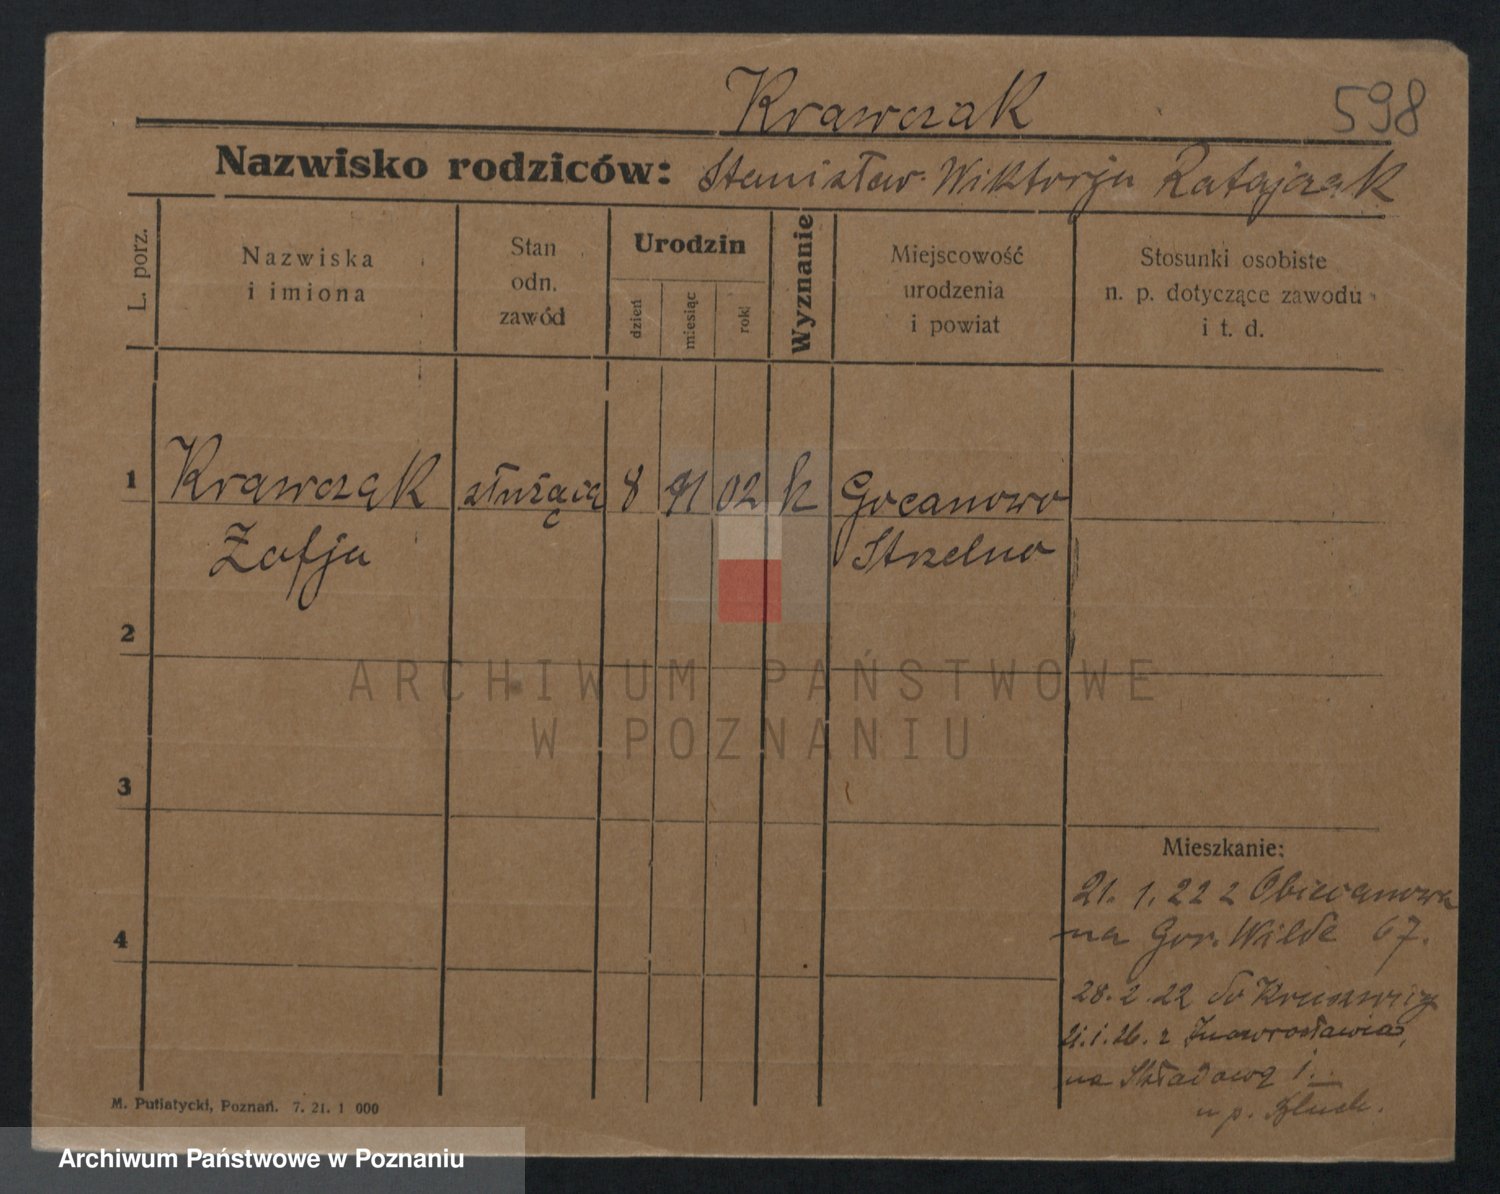 Krawczak 598
Nazwisko rodziców: Stanisław Wiktorja Ratajczak
L. porz.
Nazwiska
i imiona
Stan
odn.
zawód
Urodzin
dzień
miesiąc
rok
Wyznanie
Miejscowość
urodzenia
i powiat
Stosunki osobiste
n. p. dotyczące zawodu
i t. d.
1 Krawczak służąca 8 02 k Gocanowo
Zofja Strzelno
2
3
4
Mieszkanie:
21. 1. 22 z
na Gor. Wilde 67.
28. 2. 22 do Kruszwicy
21. 1. 26. z Inowrocławia,
na Składową 1
u p.
M. Putiatycki, Poznań. 7. 21. 1 000
ARCHIWUM PAŃSTWOWE
W POZNANIU
Archiwum Państwowe w Poznaniu